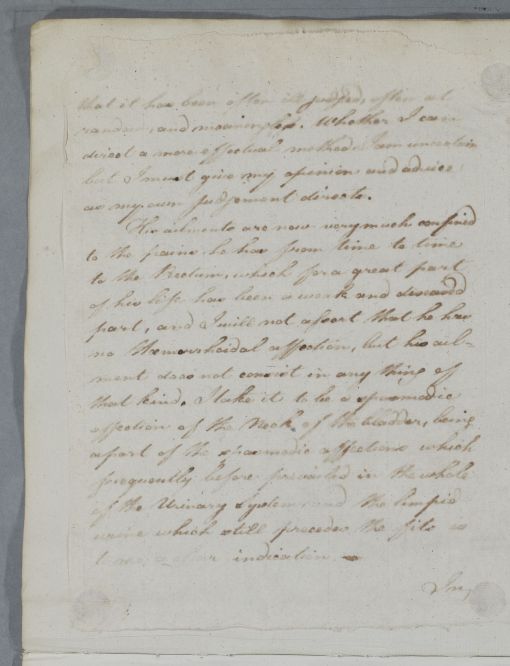 that it has been often ill judged, often at
random, and meaningless. Whether I can
direct a more effectual method I am uncertain
but I must give my opinion and advice
as my own judgement directs.
His ailments are now very much confined
to the pains he has from time to time
to the Rectum, which for a great part
of his life has been a weak and diseased
part, and I will not assert that he has
no Hæmorrhoidal affection, but his ail-
ment does not consist in any thing of
that kind. I take it to be a spasmodic
affection of the Neck of the bladder, being
a part of the spasmodic affections which
frequently before prevailed in the whole
of the Urinary System, and the limpid
urine which still precedes the fits is
to me a clear indication
In,